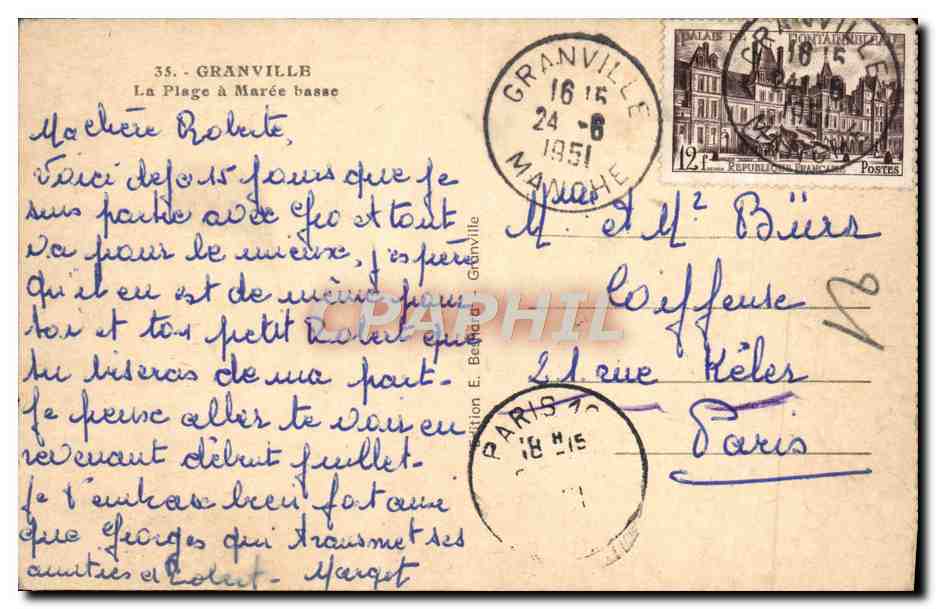 35. - GRANVILLE
La Plage à Marée basse
Ma chère Roberte,
Voici déjà 15 jours que je
suis partie avec Geo et tout
va pour le mieux, j'espère
qu'il en est de même pour
toi et ton petit Robert que
tu biseras de ma part.
Je pense aller te voir en
revenant début juillet.
Je t'embrasse bien fort ainsi
que Georges qui transmet ses
amitiés à Robert. Marget
Edition E. Besnard - Granville
GRANVILLE
16 15
24 -6
1951
MANCHE
GRANVILLE
16 15
24 -6
PALAIS DE FONTAINEBLEAU
12f REPUBLIQUE FRANÇAISE POSTES
M. et Me Bürs
Coiffeuse
21. rue Kéler
Paris
PARIS
18 H 15
CPAPHIL